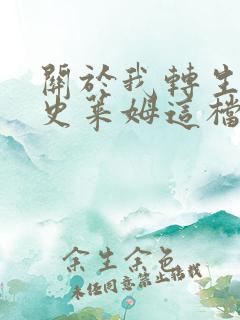 關於我轉生
史萊姆這檔
余生余色
未经同意禁止搭载